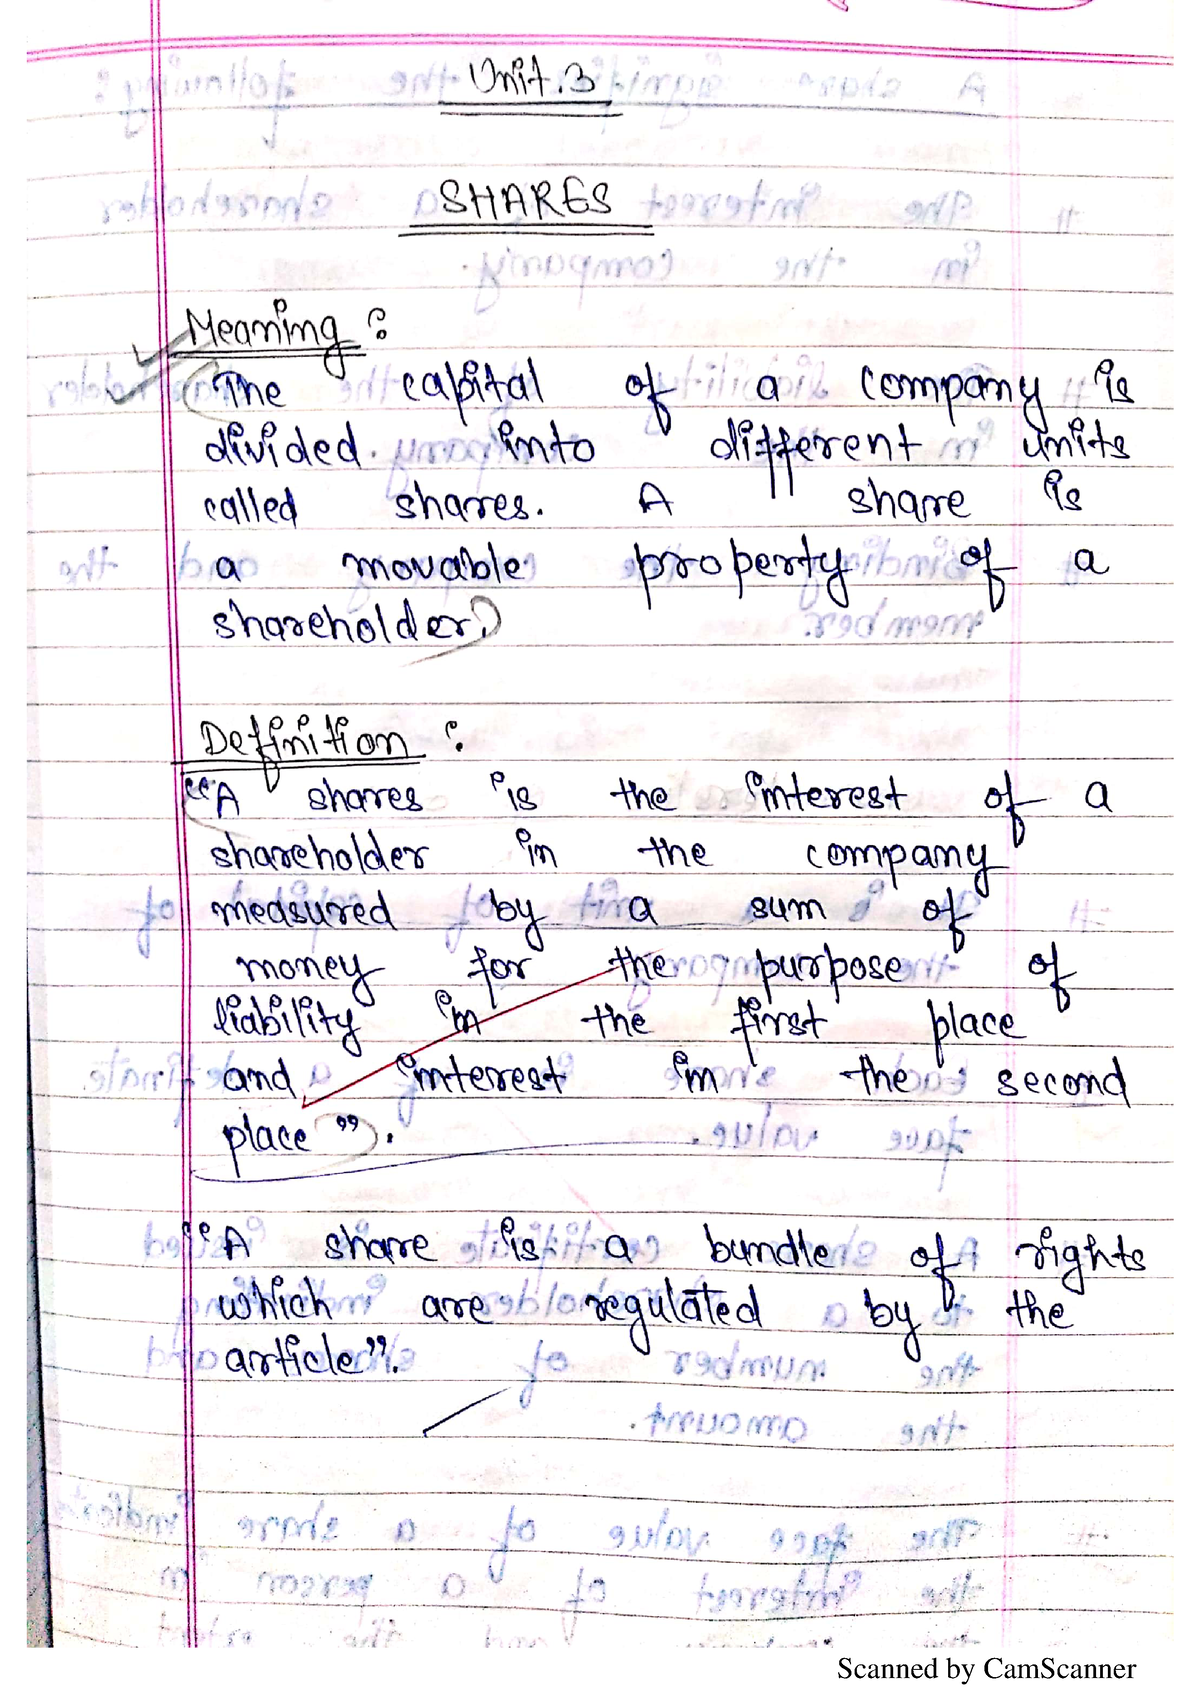 Unit.3
SHARES
Meaning :
The capital of a company is
divided into different units
called shares. A share is
a movable property of a
shareholder.
Definition :
"A shares is the interest of a
shareholder in the company
measured by a sum of
money for the purpose of
liability in the first place
and interest in the second
place".
"A share is a bundle of rights
which are regulated by the
article".
Scanned by CamScanner